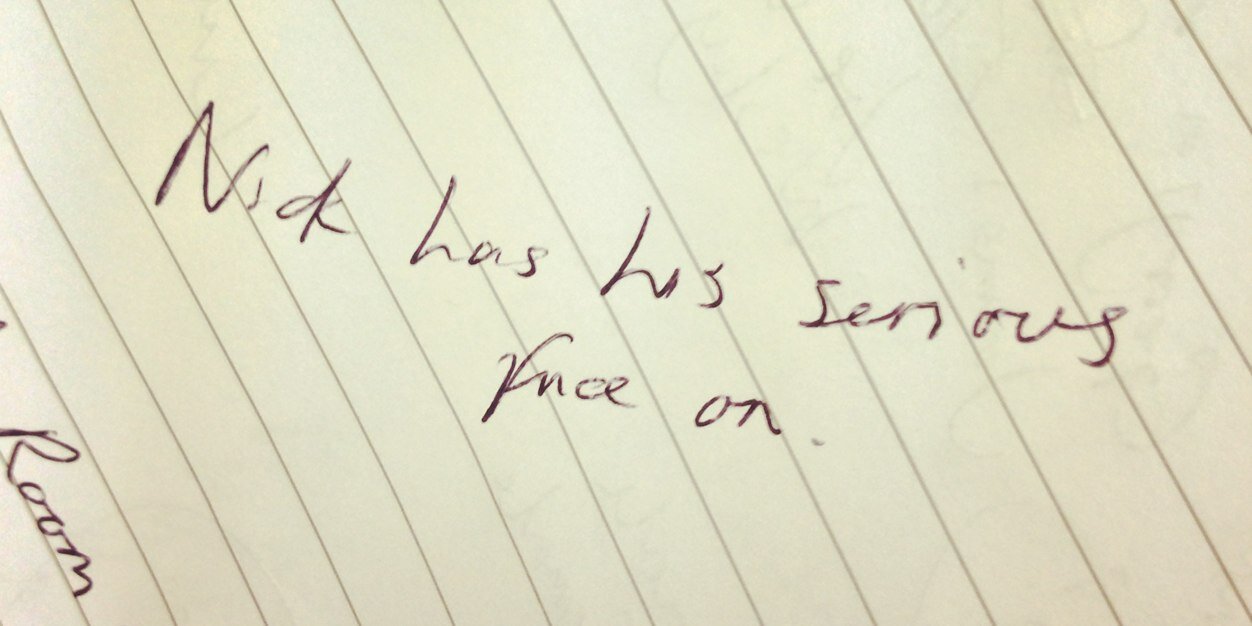 Nick has his serious
face on.
Room